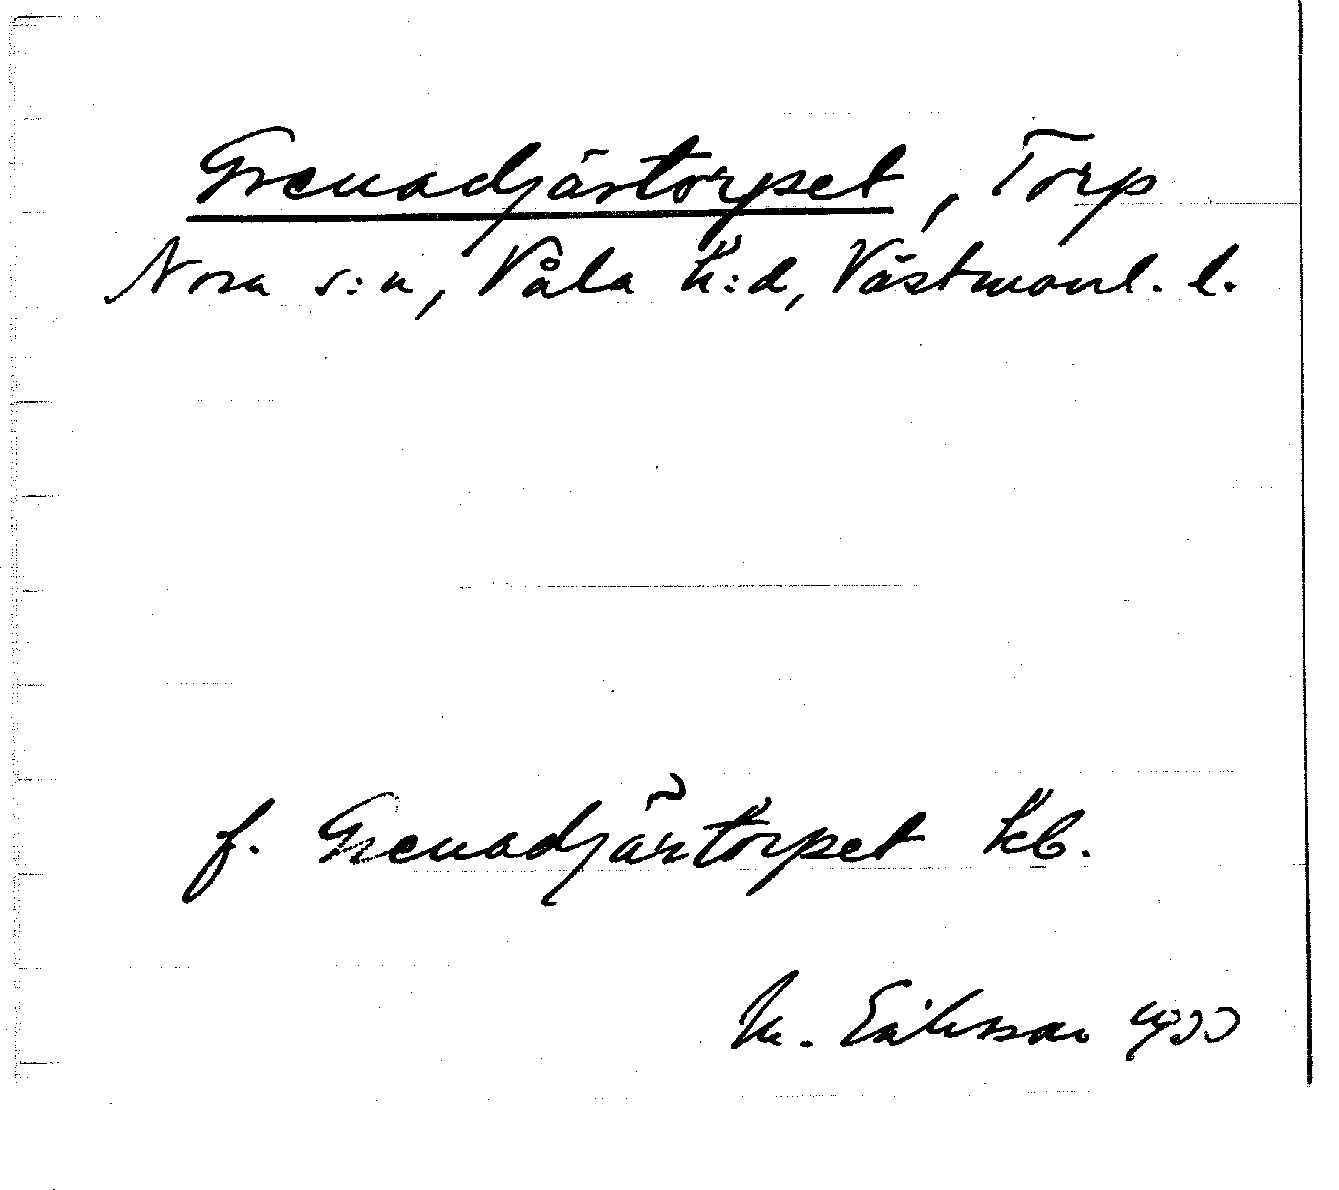 Grenadjärtorpet, Torp
Nora s:n, Våla h:d, Västmanl. l.
f. Grenadjärtorpet kb.
M. Eriksson 1933